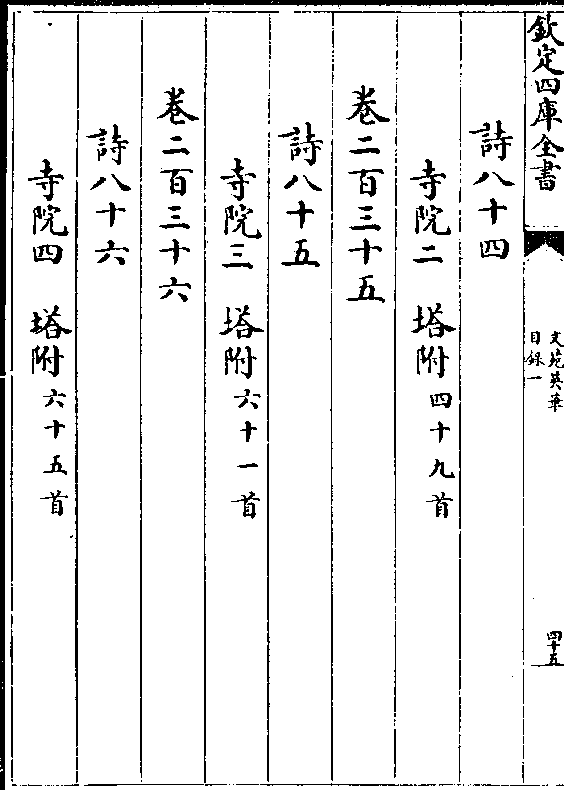 欽定四庫全書
文苑英華
目録一
四十五
詩八十四
寺院二 塔附四十九首
卷二百三十五
詩八十五
寺院三 塔附六十一首
卷二百三十六
詩八十六
寺院四 塔附六十五首